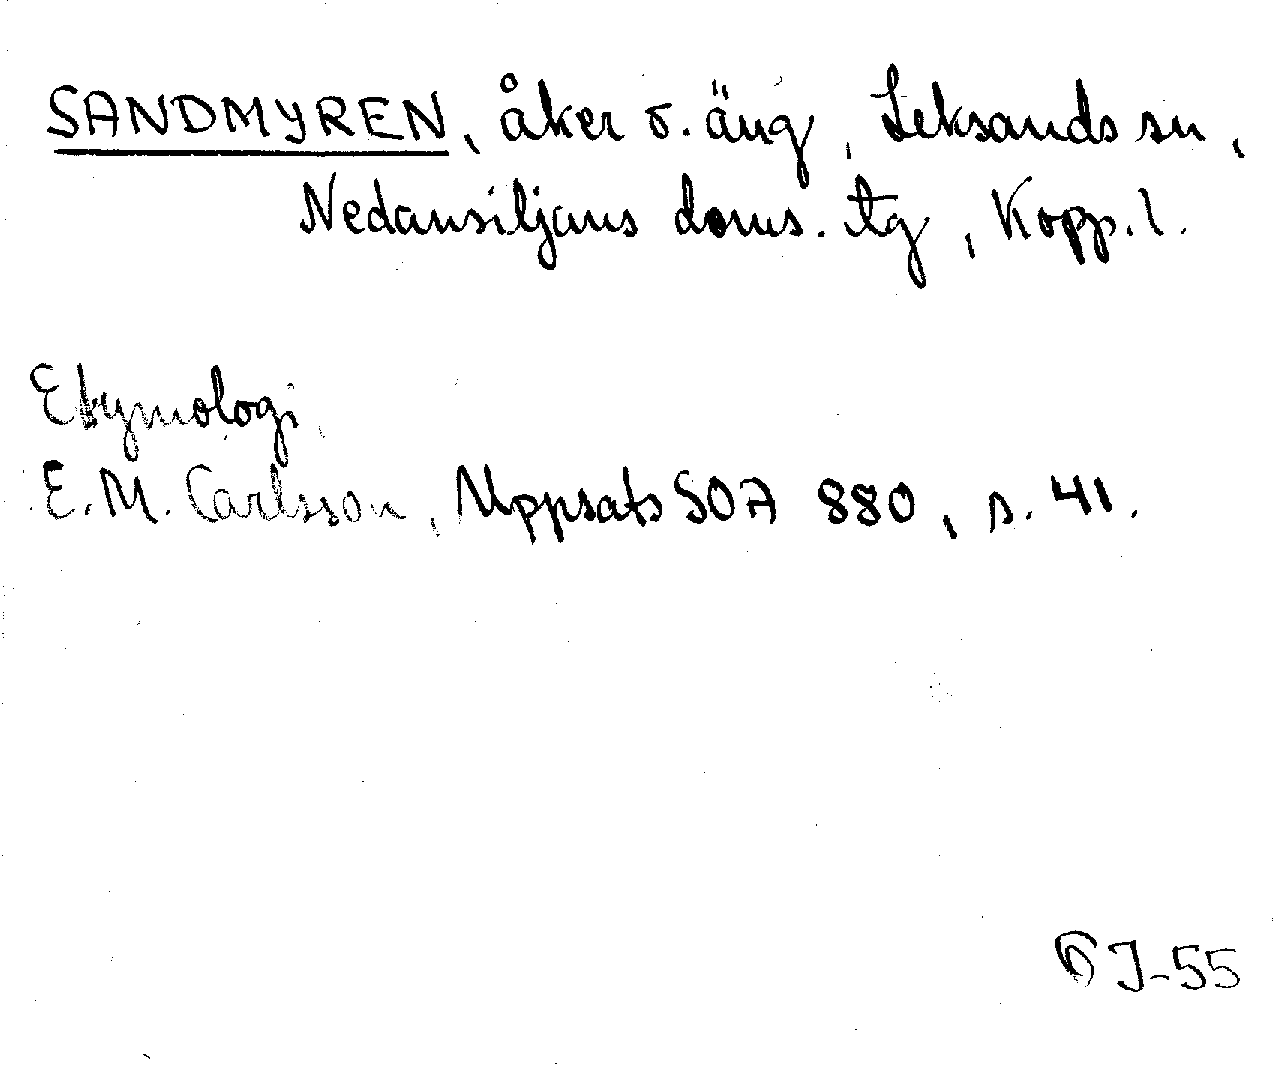 SANDMYREN, åker o. äng, Leksands sn,
Nedansiljans doms. tg, Kopp. l.
Etymologi.
E. M. Carlsson, Uppsats SOA 880, s. 41.
J-55